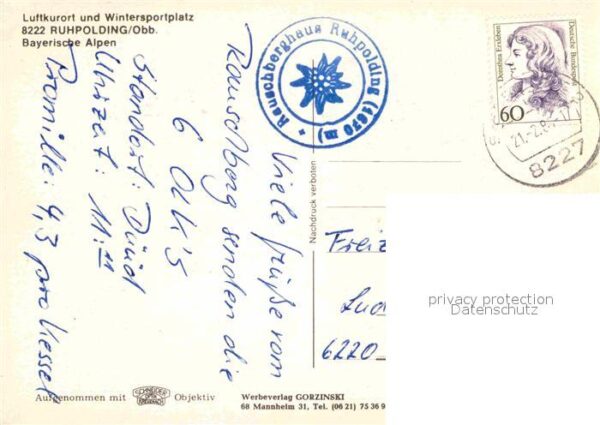 Luftkurort und Wintersportplatz
8222 RUHPOLDING/Obb.
Bayerische Alpen
Rauschberghaus Ruhpolding (1670 m)
Dorothea Erxleben
Deutsche Bundespost
60
21.-2.8
8227
Viele Grüße vom
Rauschberg senden die
6 Olk's
Standort: Düüd
Uhrzeit: 11:11
Promille: 4,3 pro Kessel
Nachdruck verboten
Freiz
Lud
6220
privacy protection
Datenschutz
Aufgenommen mit SCHNEIDER KREUZNACH Objektiv
Werbeverlag GORZINSKI
68 Mannheim 31, Tel. (06 21) 75 36 9